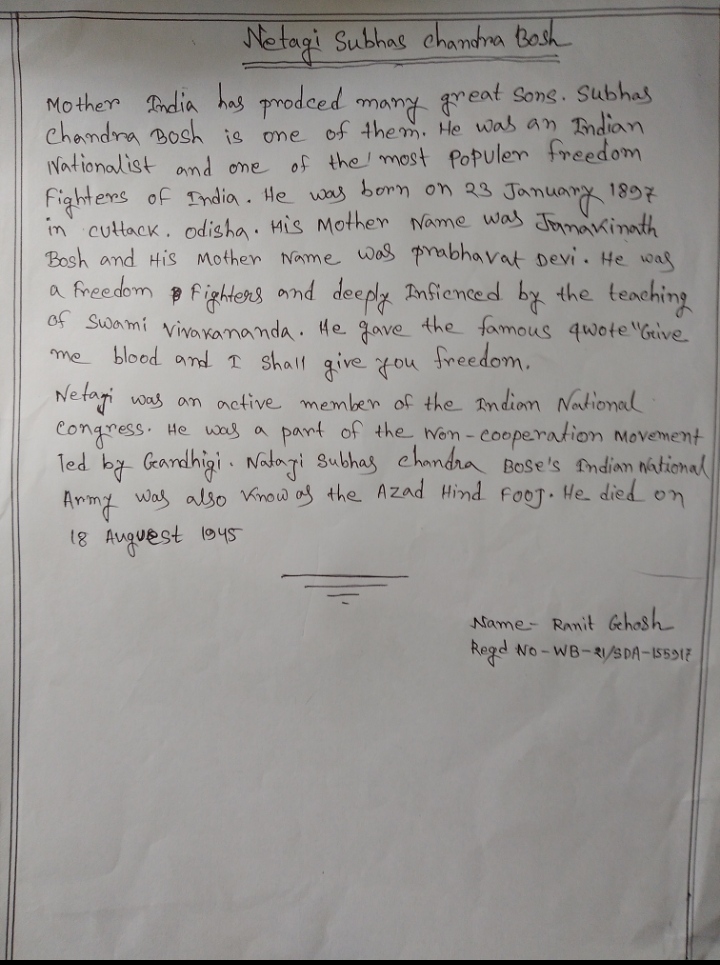 Netagi Subhas Chandra Bosh
Mother India has prodced many great sons. Subhas
Chandra Bosh is one of them. He was an Indian
Nationalist and one of the most Populer freedom
Fighters of India. He was born on 23 January 1897
in cuttack. odisha. His Mother Name was Janakinath
Bosh and His Mother Name was prabhavat Devi. He was
a freedom Fighters and deeply Infienced by the teaching
of Swami Vivakananda. He gave the famous qwote "Give
me blood and I shall give you freedom.
Netagi was an active member of the Indian National
Congress. He was a part of the Non-cooperation Movement
led by Gandhigi. Natagi Subhas Chandra Bose's Indian National
Army was also Know as the Azad Hind Fooj. He died on
18 Auguest 1945
Name- Ranit Ghosh
Regd No-WB-21/SDA-155917